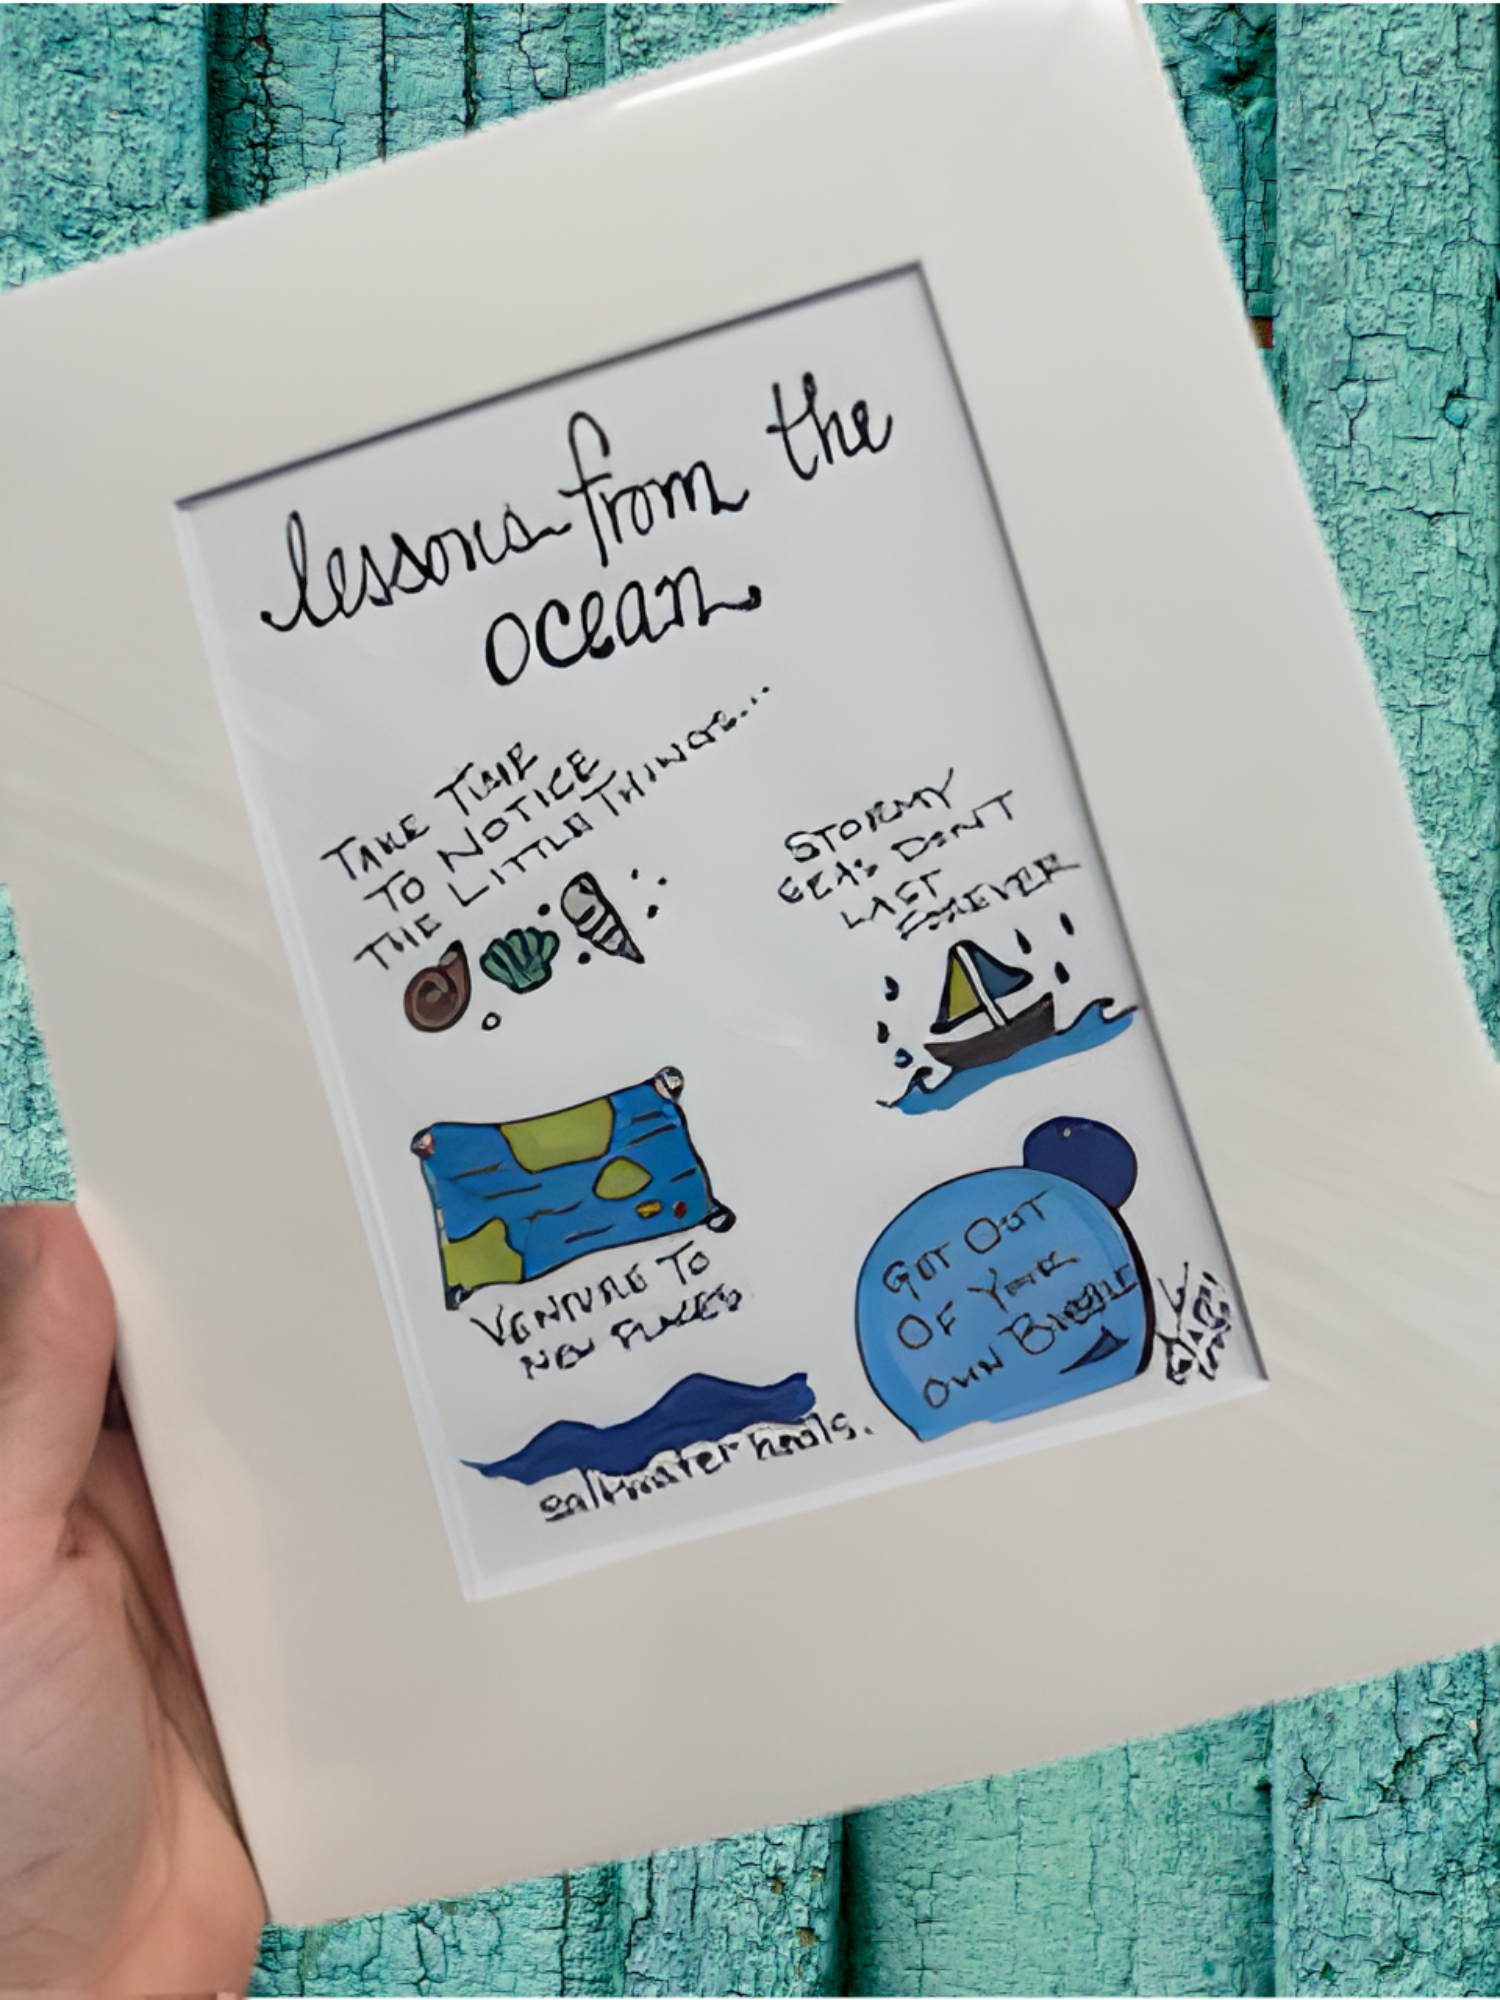 lessons from the
ocean
TAKE TIME
TO NOTICE
THE LITTLE THINGS...
STORMY
SEAS DON'T
LAST
FOREVER
VENTURE TO
NEW PLACES
GET OUT
OF YOUR
OWN BUBBLE
saltwater heals.